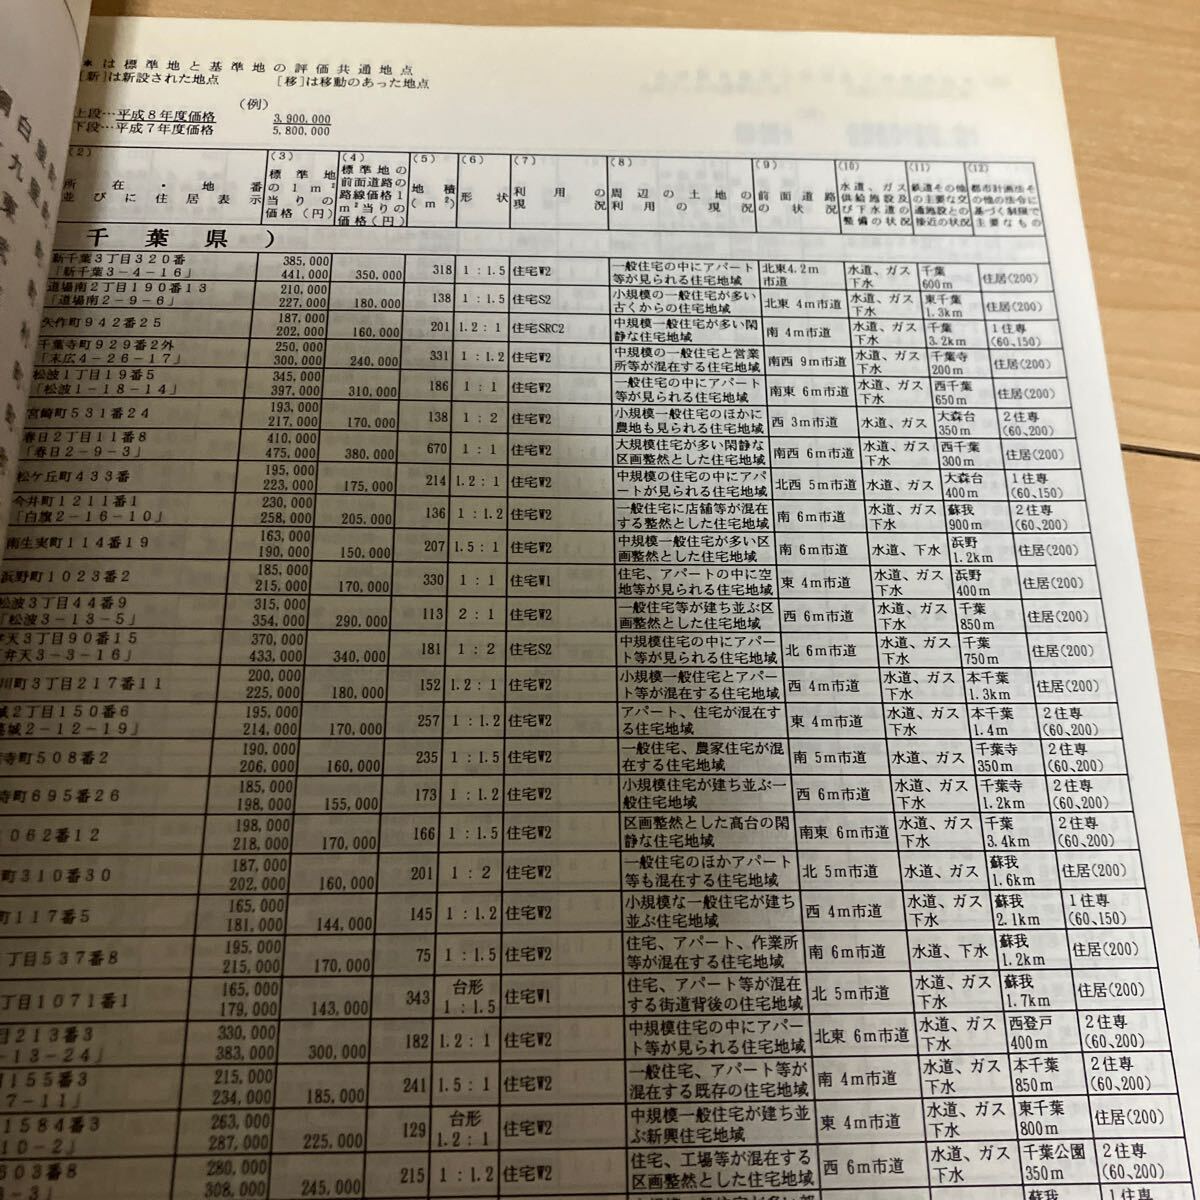 *は標準地と基準地の評価共通地点
[新]は新設された地点 [移]は移動のあった地点
(例)
上段…平成8年度価格 3,900,000
下段…平成7年度価格 5,800,000
(2) (3) (4) (5) (6) (7) (8) (9) (10) (11) (12)
所在・地番並びに住居表示 標準地の1m²当りの価格(円) 標準地の前面道路の路線価格1m²当りの価格(円) 地積(m²) 形状 利用の現況 周辺の土地の利用の現況 前面道路の状況 水道、ガス供給施設及び下水道の整備の状況 鉄道その他の主要な交通施設との接近の状況 都市計画法その他の法令に基づく制限で主要なもの
千葉県)
新千葉3丁目320番「新千葉3-4-16」 385,000 441,000 350,000 318 1:1.5 住宅W2 一般住宅の中にアパート等が見られる住宅地域 北東4.2m市道 水道、ガス下水 千葉600m 住居(200)
道場南2丁目190番13「道場南2-9-6」 210,000 227,000 180,000 138 1:1.5 住宅S2 小規模の一般住宅が多い古くからの住宅地域 北東4m市道 水道、ガス下水 東千葉1.3km 住居(200)
矢作町942番25 187,000 202,000 160,000 201 1.2:1 住宅SRC2 中規模一般住宅が多い閑静な住宅地域 南4m市道 水道、ガス下水 千葉3.2km 1住専(60、150)
千葉寺町929番2外「末広4-26-17」 250,000 300,000 240,000 331 1:1.2 住宅W2 中規模の一般住宅と営業所等が混在する住宅地域 南西9m市道 水道、ガス下水 千葉寺200m 住居(200)
松波1丁目19番5「松波1-18-14」 345,000 397,000 310,000 186 1:1 住宅W2 一般住宅の中にアパート等が見られる住宅地域 南東6m市道 水道、ガス下水 西千葉650m 住居(200)
宮崎町531番24 193,000 217,000 170,000 138 1:2 住宅W2 小規模一般住宅のほかに農地も見られる住宅地域 西3m市道 水道、ガス 大森台350m 2住専(60、200)
春日2丁目11番8「春日2-9-3」 410,000 475,000 380,000 670 1:1 住宅W2 大規模住宅が多い閑静な区画整然とした住宅地域 南西6m市道 水道、ガス下水 西千葉300m 住居(200)
松ケ丘町433番 195,000 223,000 175,000 214 1.2:1 住宅W2 中規模の住宅の中にアパートが見られる住宅地域 北西5m市道 水道、ガス 大森台400m 1住専(60、150)
今井町1211番1「白旗2-16-10」 230,000 258,000 205,000 136 1:1.2 住宅W2 一般住宅に店舗等が混在する整然とした住宅地域 南6m市道 水道、ガス下水 蘇我900m 2住専(60、200)
南生実町114番19 163,000 190,000 150,000 207 1.5:1 住宅W2 中規模一般住宅が多い区画整然とした住宅地域 南6m市道 水道、下水 浜野1.2km 住居(200)
浜野町1023番2 185,000 215,000 170,000 330 1:1 住宅W1 住宅、アパートの中に空地等が見られる住宅地域 東4m市道 水道、ガス下水 浜野400m 住居(200)
松波3丁目44番9「松波3-13-5」 315,000 354,000 290,000 113 2:1 住宅W2 一般住宅等が建ち並ぶ区画整然とした住宅地域 西6m市道 水道、ガス下水 千葉850m 住居(200)
弁天3丁目90番15「弁天3-3-16」 370,000 433,000 340,000 181 1:2 住宅S2 中規模住宅の中にアパート等が見られる住宅地域 北6m市道 水道、ガス下水 千葉750m 住居(200)
川町3丁目217番11 200,000 225,000 180,000 152 1.2:1 住宅W2 小規模一般住宅とアパート等が混在する住宅地域 西4m市道 水道、ガス下水 本千葉1.3km 住居(200)
城2丁目150番6 葛城2-12-19」 195,000 214,000 170,000 257 1:1.2 住宅W2 アパート、住宅が混在する住宅地域 東4m市道 水道、ガス下水 本千葉1.4m 2住専(60、200)
寺町508番2 190,000 206,000 160,000 235 1:1.2 住宅W2 一般住宅、農家住宅が混在する住宅地域 南5m市道 水道、ガス 千葉寺350m 2住専(60、200)
寺町695番26 185,000 198,000 155,000 173 1:1.2 住宅W2 小規模住宅が建ち並ぶ一般住宅地域 西6m市道 水道、ガス下水 千葉寺1.2km 2住専(60、200)
1062番12 198,000 218,000 170,000 166 1:1.5 住宅W2 区画整然とした高台の閑静な住宅地域 南東6m市道 水道、ガス下水 千葉3.4km 2住専(60、200)
町310番30 187,000 202,000 160,000 201 1:2 住宅W2 一般住宅のほかアパート等も混在する住宅地域 北5m市道 水道、ガス 蘇我1.6km 住居(200)
町117番5 165,000 181,000 144,000 145 1:1.2 住宅W2 小規模な一般住宅が建ち並ぶ住宅地域 西4m市道 水道、ガス下水 蘇我2.1km 1住専(60、150)
丁目537番8 195,000 215,000 170,000 75 1:1.5 住宅W2 住宅、アパート、作業所等が混在する住宅地域 南6m市道 水道、下水 蘇我1.2km 住居(200)
丁目1071番1 165,000 179,000 143,000 343 台形1:1.5 住宅W1 住宅、アパート等が混在する街道背後の住宅地域 北5m市道 水道、ガス下水 蘇我1.7km 住居(200)
目213番3 -13-24」 330,000 383,000 300,000 182 1.2:1 住宅W2 中規模住宅の中にアパート等が見られる住宅地域 北東6m市道 水道、ガス下水 西登戸400m 2住専(60、200)
155番3 7-11」 215,000 234,000 185,000 241 1.5:1 住宅W2 一般住宅、アパート等が混在する既存の住宅地域 南4m市道 水道、ガス下水 本千葉850m 2住専(60、200)
1584番3 10-2」 263,000 287,000 225,000 129 台形1.2:1 住宅W2 中規模一般住宅が建ち並ぶ新興住宅地域 東4m市道 水道、ガス下水 東千葉800m 住居(200)
603番8 -3」 280,000 308,000 245,000 215 1:1.2 住宅W2 住宅、工場等が混在する区画整然とした住宅地域 西6m市道 水道、ガス下水 千葉公園350m 2住専(60、200)
水道、ガス 蘇我 1住専